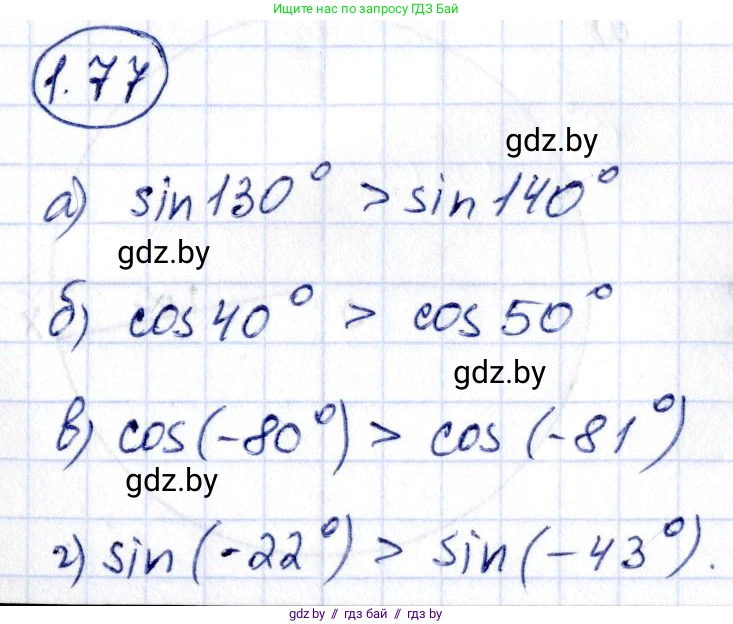 Ищите нас по запросу ГДЗ Бай
1.77
gdz.by
а) sin 130° > sin 140°
gdz.by
б) cos 40° > cos 50°
gdz.by
в) cos(-80°) > cos(-81°)
gdz.by
г) sin(-22°) > sin(-43°).
gdz.by // гдз бай // гдз by